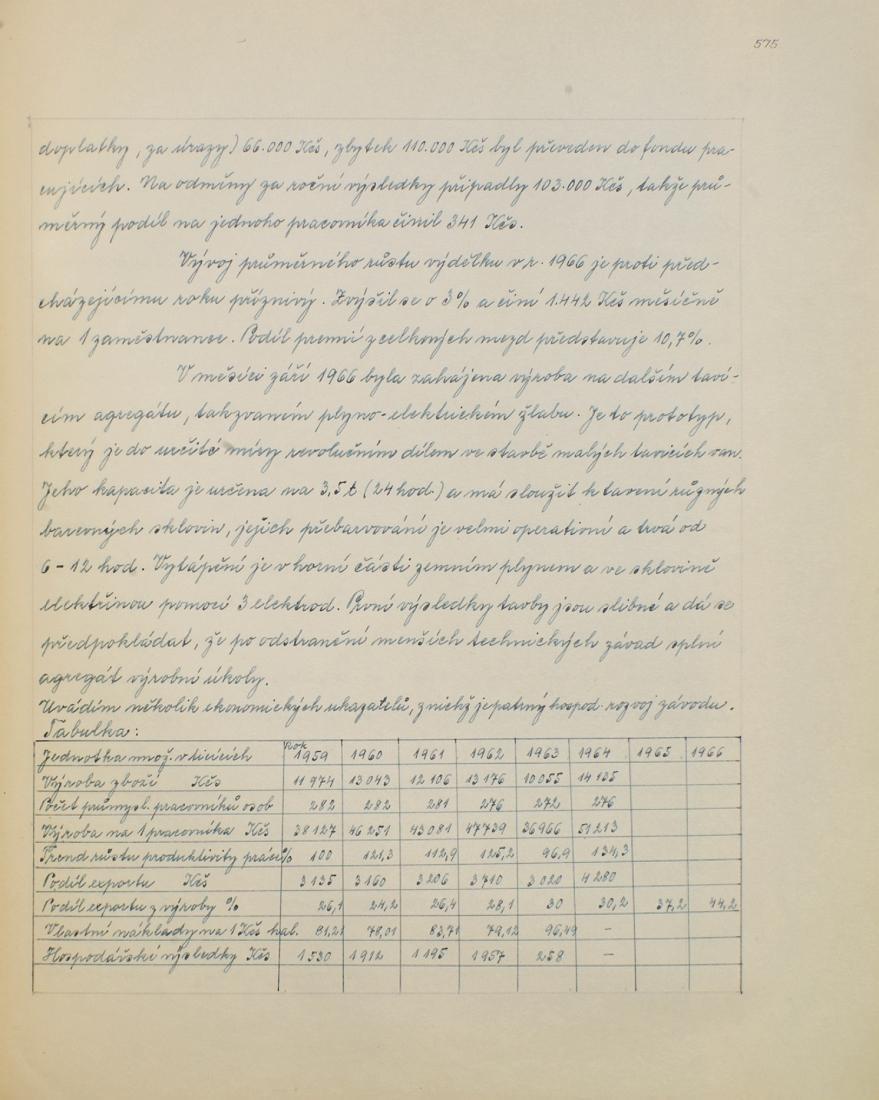 575
doplatky, za úrazy) 66.000 Kčs, zbytek 110.000 Kčs byl převeden do fondu pra-
cujících. Na odměny za roční výsledky připadly 103.000 Kčs, takže prů-
měrný podíl na jednoho pracovníka činil 341 Kčs.
Vývoj průměrného růstu výdělku v r. 1966 je proti před-
cházejícímu roku příznivý. Zvýšil se o 3% a činí 1.442 Kčs měsíčně
na 1 zaměstnance. Podíl premií z celkových mezd představuje 10,7%.
V měsíci září 1966 byla zahájena výroba na dalším taví-
cím agregátu, takzvaném plyno-elektrickém žlabu. Je to prototyp,
který je do určité míry revolučním dílem ve stavbě malých tavicích van.
Jeho kapacita je určena na 3,5 t (24 hod.) a má sloužit k tavení různých
barevných sklovin, jejich přebarvování je velmi operationí a trvá od
6 - 12 hod. Vytápění je v horní části zemním plynem a ve sklovině
elektřinou pomocí 3 elektrod. První výsledky tavby jsou slibné a dá se
předpokládat, že po odstranění menších technických závad splní
agregát výrobní úkoly.
Uvádím několik ekonomických ukazatelů, z nichž je patrný hospod. rozvoj závodu.
Tabulka:
Jednotka množ. v tisících Rok 1959 1960 1961 1962 1963 1964 1965 1966
Výroba zboží Kčs 11 974 13 043 12 106 13 176 10 055 14 135
Počet průmysl. pracovníků osob 282 282 281 276 272 276
Výroba na 1 pracovníka Kčs 38 127 46 251 43 081 47739 36966 51213
Trend růstu produktivity práce % 100 121,3 112,9 125,2 96,9 134,3
Podíl exportu Kčs 3 135 3 160 3 206 3 710 3 020 4 280
Podíl exportu z výroby % 26,1 24,2 26,4 28,1 30 30,2 37,2 44,2
Vlastní náklady na 1 Kčs hal. 81,21 78,01 83,71 79,12 96,49 -
Hospodářské výsledky Kčs 1 530 1 912 1 195 1 957 258 -